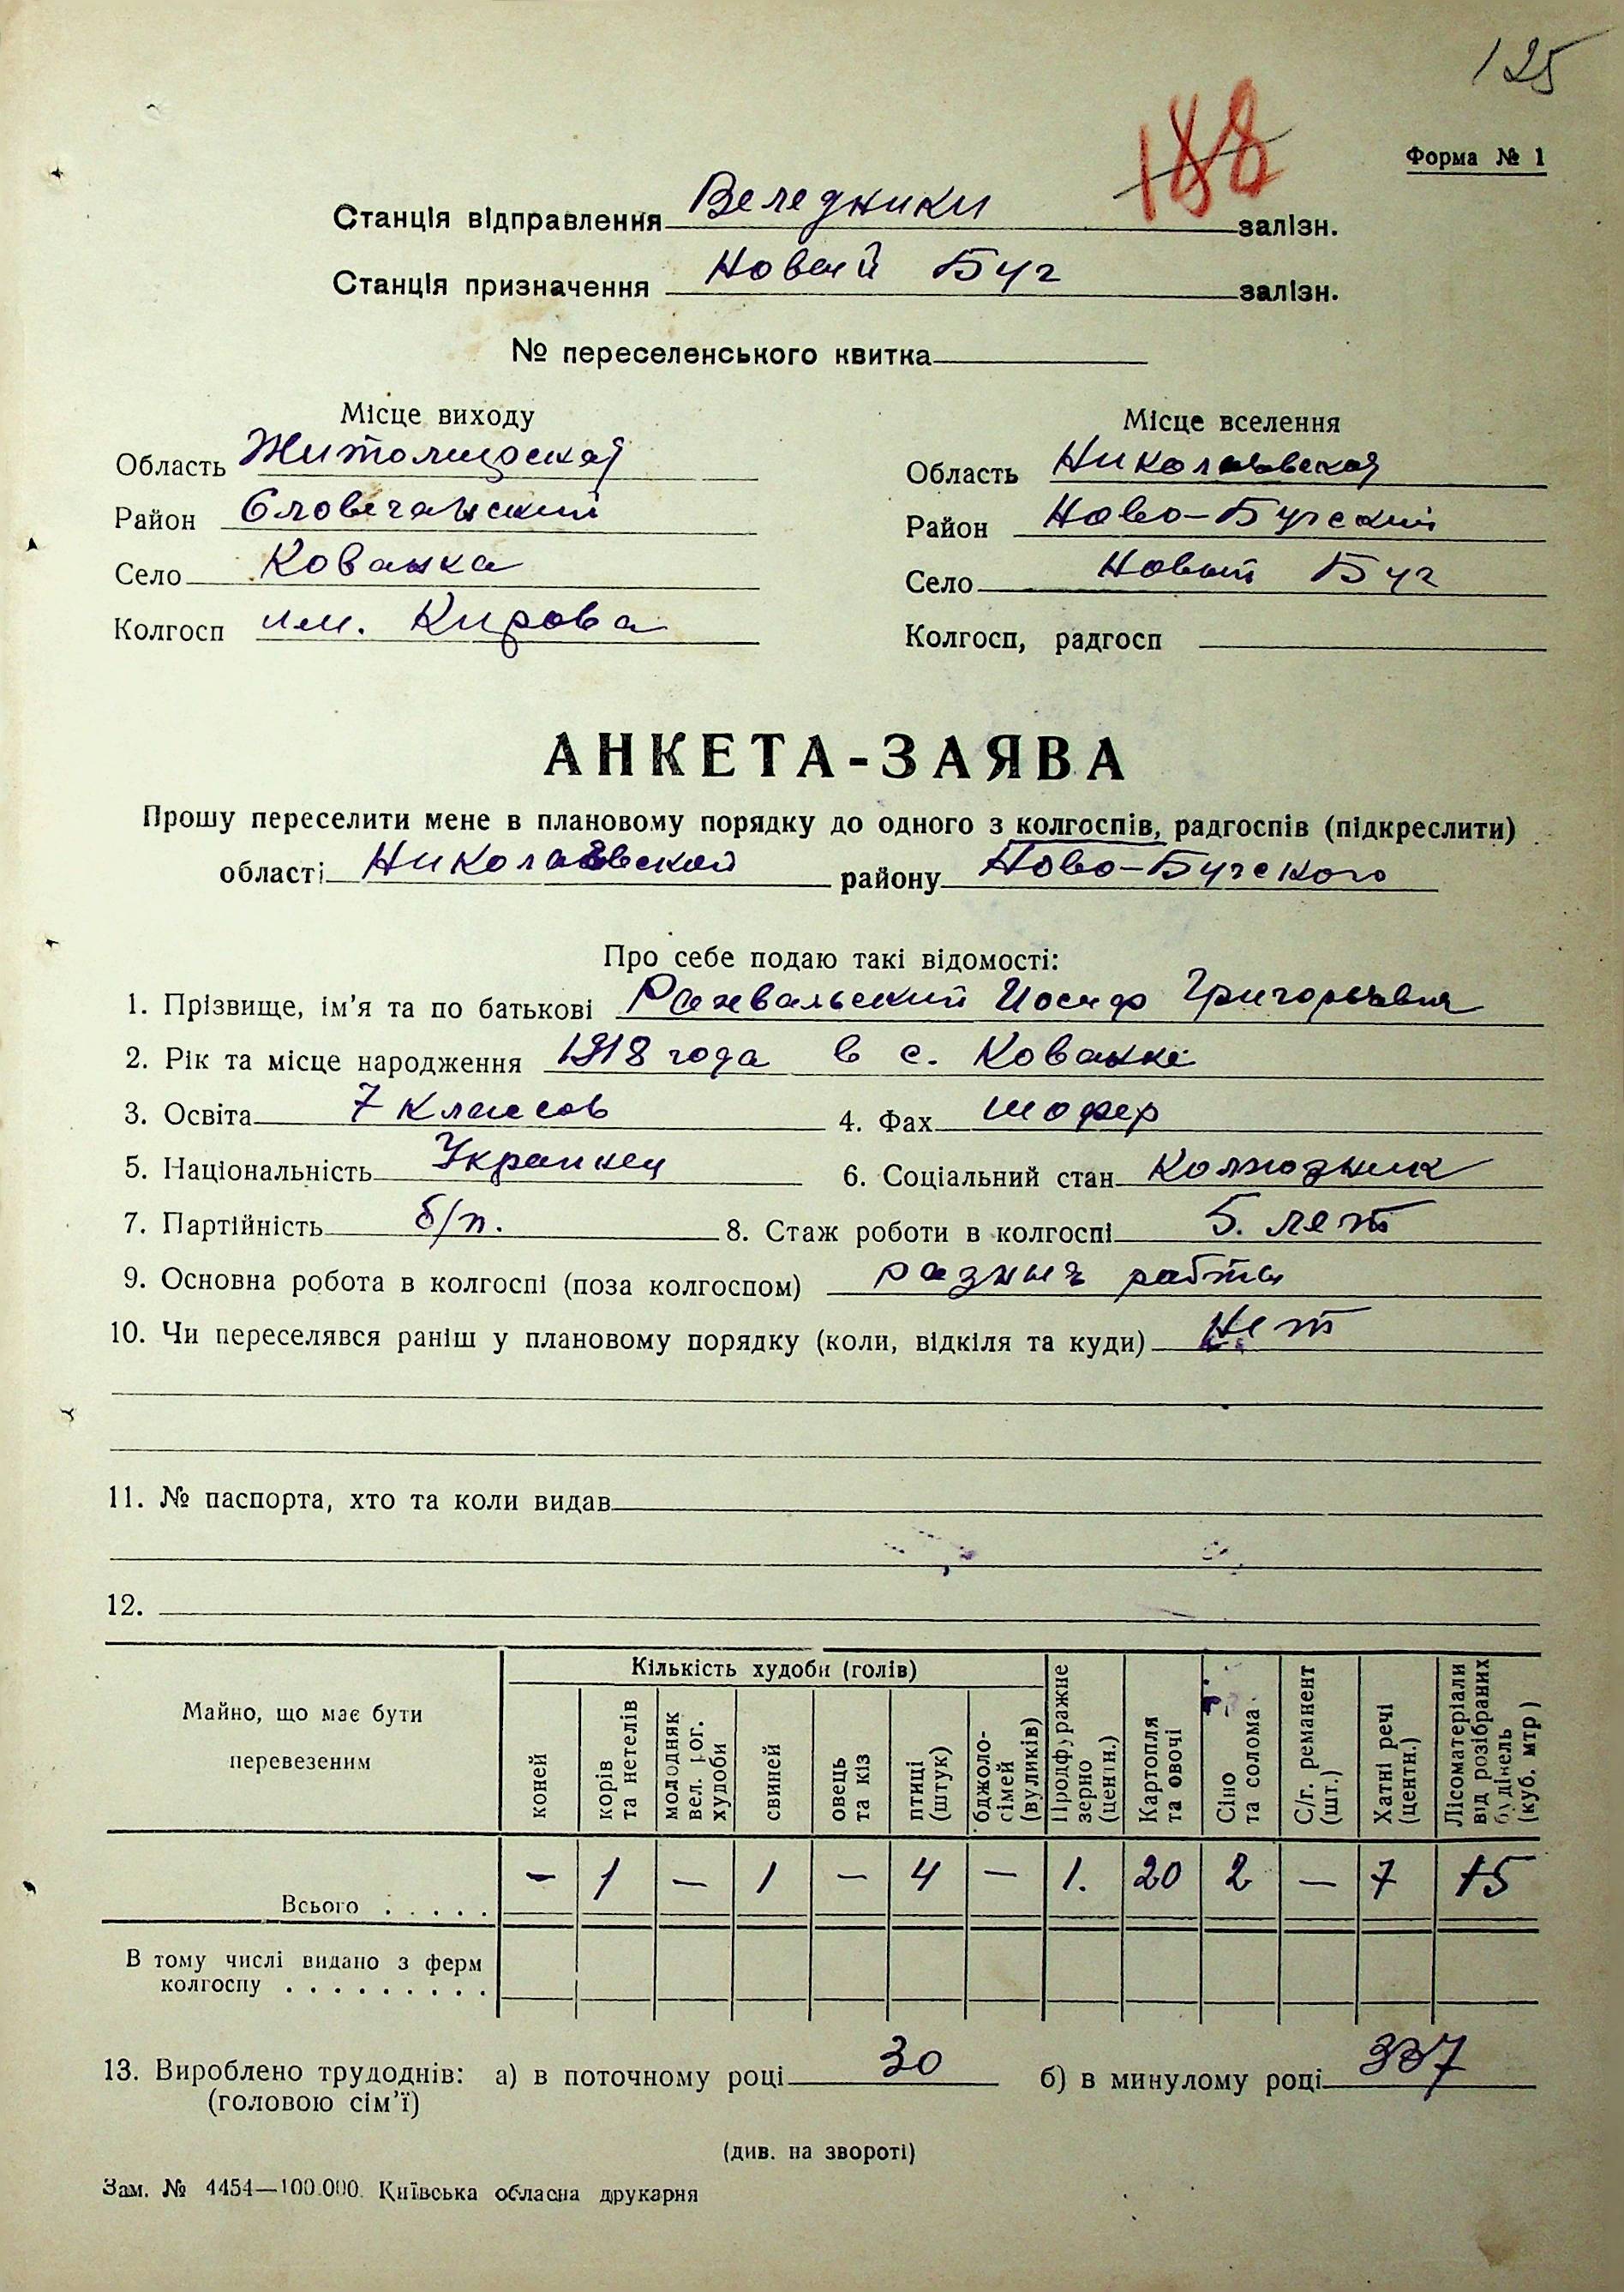 125
188
Форма № 1
Станція відправлення Веледники залізн.
Станція призначення Новый Буг залізн.
№ переселенського квитка
Місце виходу Місце вселення
Область Житомирская Область Николаевская
Район Словечанский Район Ново-Бугский
Село Кованка Село Новый Буг
Колгосп им. Кирова Колгосп, радгосп
АНКЕТА-ЗАЯВА
Прошу переселити мене в плановому порядку до одного з колгоспів, радгоспів (підкреслити)
області Николаевской району Ново-Бугского
Про себе подаю такі відомості:
1. Прізвище, ім'я та по батькові Иосиф Григорьевич
2. Рік та місце народження 1918 года в с. Кованке
3. Освіта 7 классов 4. Фах шофер
5. Національність Украинец 6. Соціальний стан Колхозник
7. Партійність б/п. 8. Стаж роботи в колгоспі 5. лет
9. Основна робота в колгоспі (поза колгоспом) разных работы
10. Чи переселявся раніш у плановому порядку (коли, відкіля та куди) Нет
11. № паспорта, хто та коли видав
12.
Майно, що має бути перевезеним
Кількість худоби (голів)
коней
корів та нетелів
молодняк вел. рог. худоби
свиней
овець та кіз
птиці (штук)
бджоло-сімей (вуликів)
Продфуражне зерно (центн.)
Картопля та овочі
Сіно та солома
С/г. реманент (шт.)
Хатні речі (центн.)
Лісоматеріали від розібраних будівель (куб. мтр)
Всього . . . . . – 1 – 1 – 4 – 1. 20 2 – 7 15
В тому числі видано з ферм
колгоспу . . . . . . . . .
13. Вироблено трудоднів: а) в поточному році 30 б) в минулому році 337
(головою сім'ї)
(див. на звороті)
Зам. № 4454—100.000. Київська обласна друкарня